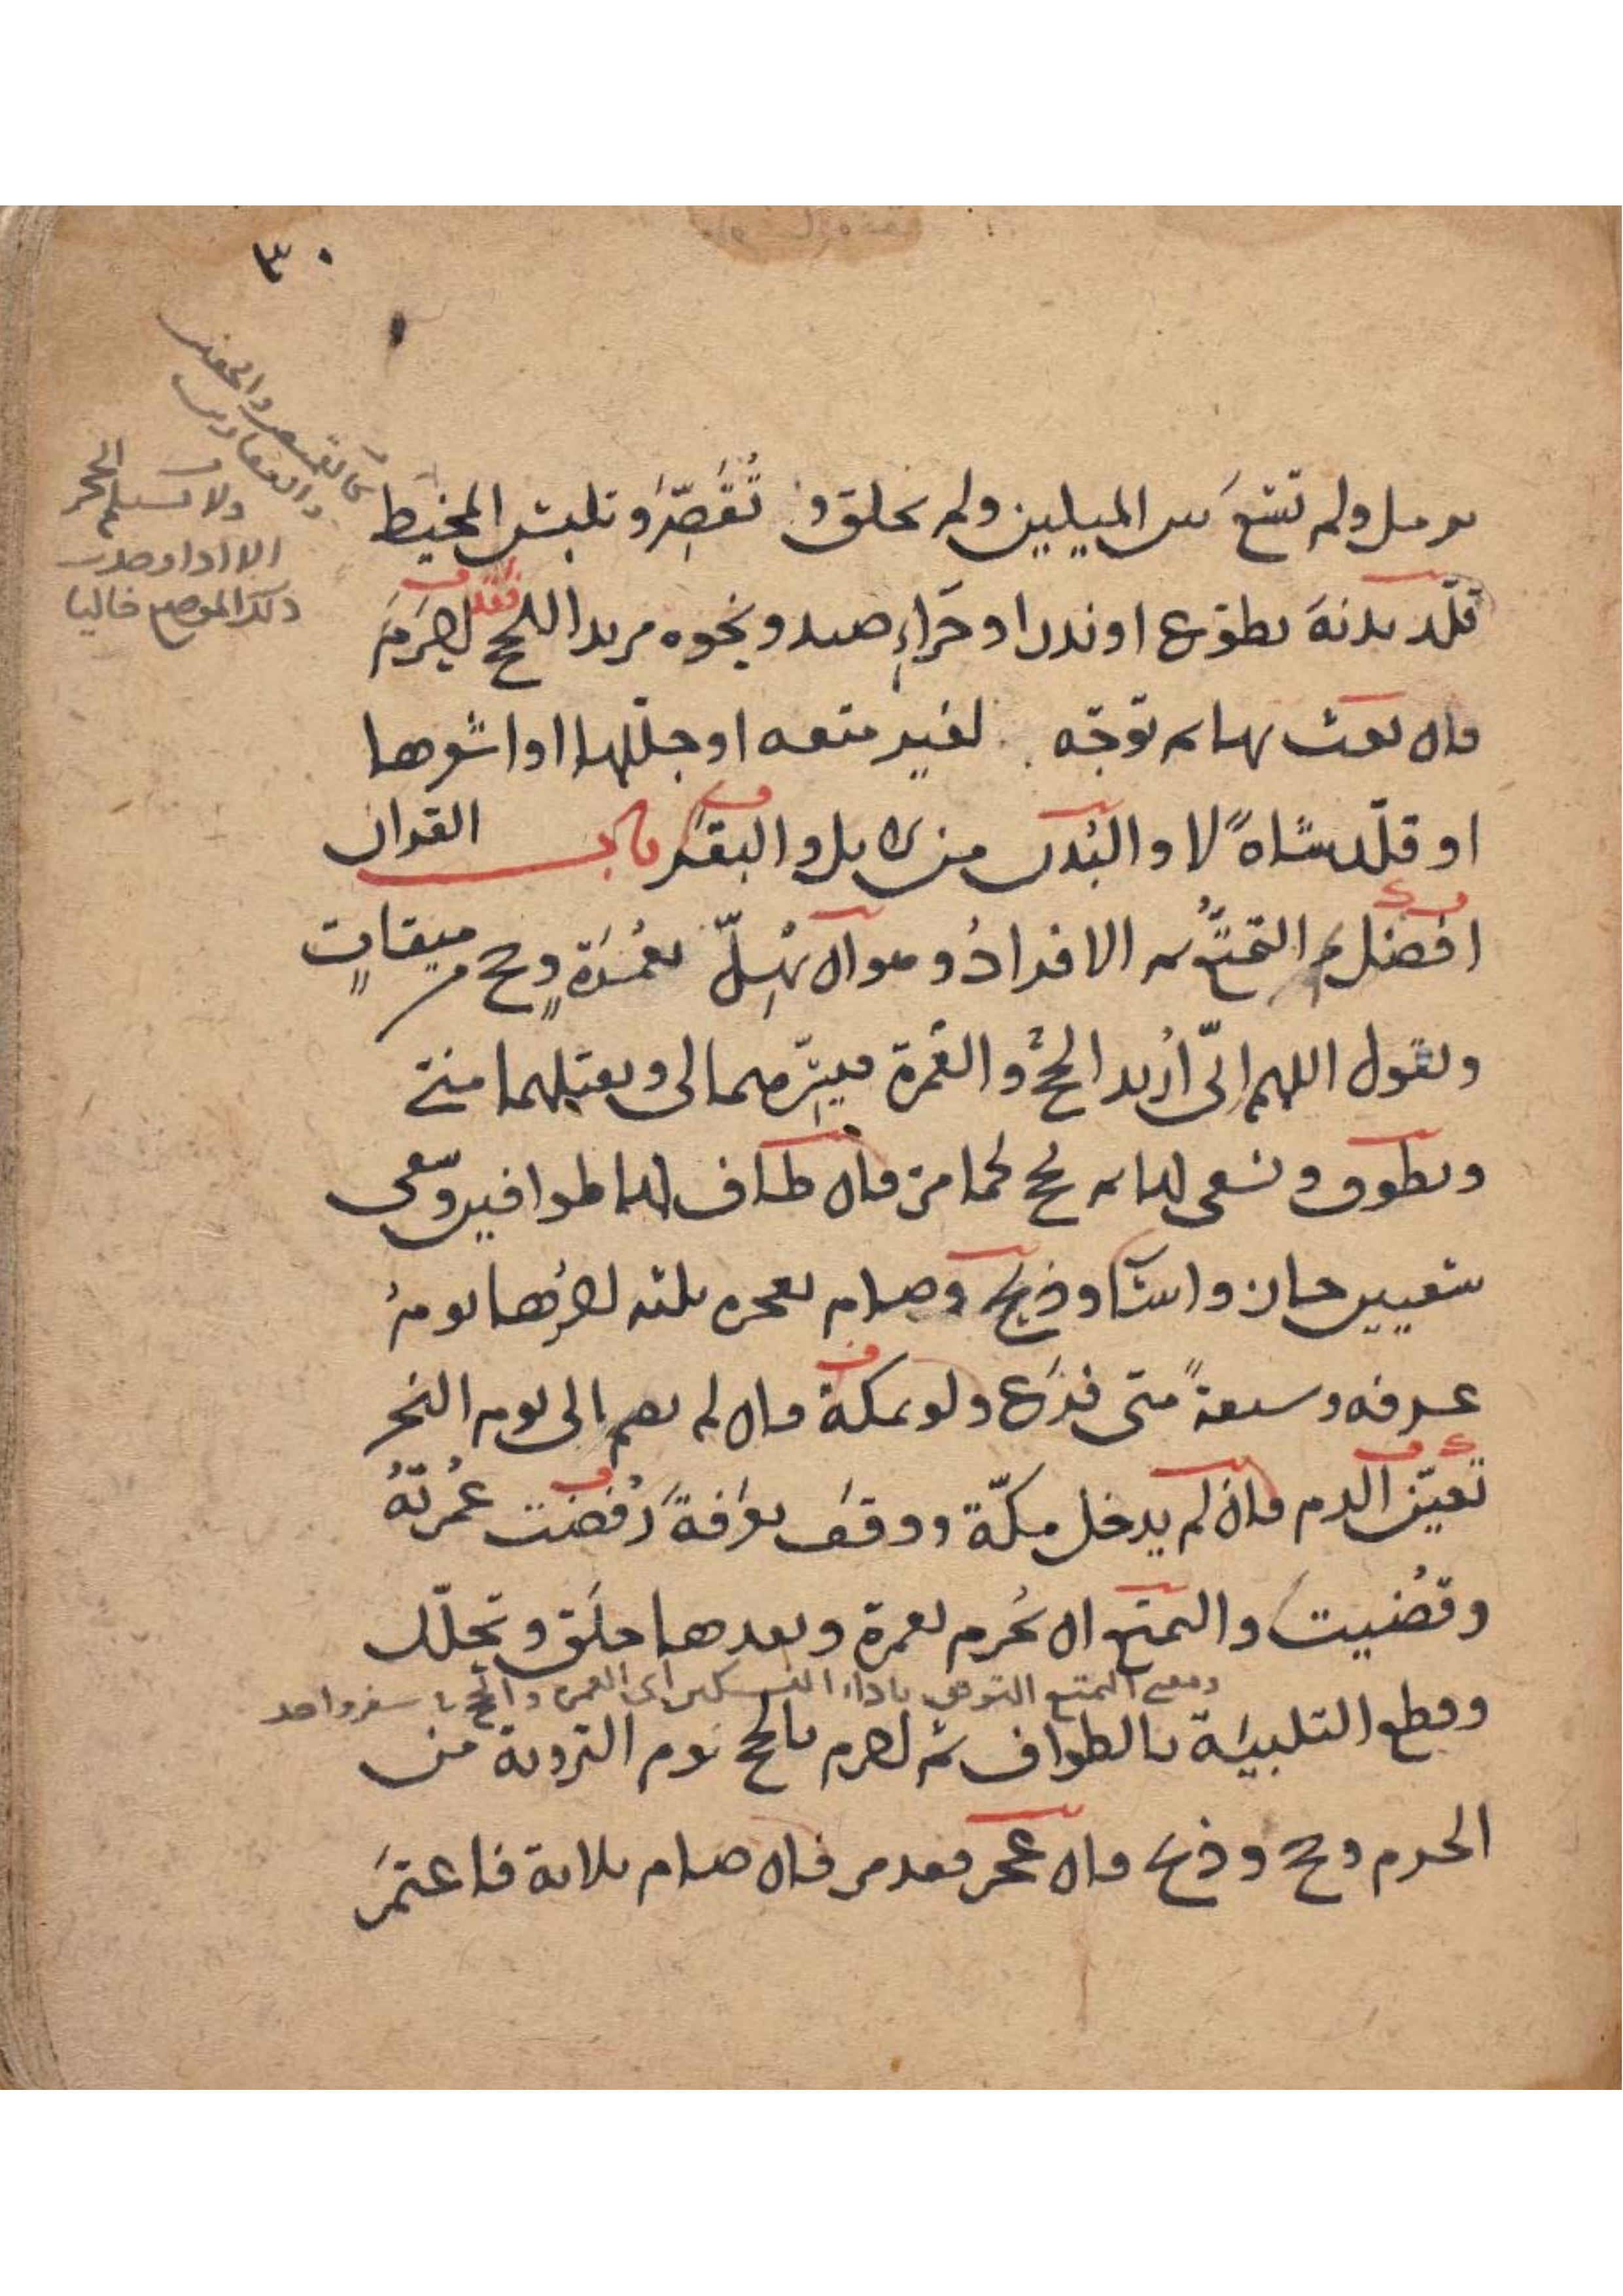 ٣٠
كالقميص والخفين
والقفازين
ولا تستلم الحجر
الا اذا وجدت
ذلك الموضع خاليا
ترمل ولم تسع بين الميلين ولم تحلق و تُقَصِّرُ وتلبس المخيط
قلّد بدنة تطوّع او نذر او جَزاءِ صيد ونحوه مريدا للحج احرَم
فان بعث بها ثم توجّه لغير متعه او جللها او اشعرها
او قلّد شاةً لا والبُدن من الابل والبقر باب القران
افضل ثم التمتّعُ ثم الافرادُ وهو ان يُهِلّ بعُمرَةٍ وحج من ميقاتٍ
ويقول اللهم انّى أُريد الحجَّ والعُمرة فيسّرهما لى وتقبلهما منى
ويطوف ويسعى لها ثم يحج كما مرّ فان طاف لهما طوافين وسعى
سعيين جاز واساء وذبح وصام لعجزه ثلثه اخرُها يومُ
عرفه وسبعةً متى فرَغ ولو بمكة فان لم يصم الى يوم النحر
تعيّن الدم فان لم يدخل مكّة ووقف بعرفة رُفضت عُمرتُهُ
وقُضيت والتمتع ان يُحرم بعمرة وبعدها حلَق وتحلّل
ومعنى التمتع الترفق باداء النسكين اى العمره والحج فى سفر واحد
وقطع التلبيَة بالطواف ثم احرم بالحج يوم التروية من
الحرم وحج وذبح فان عجز فقد مر فان صام ثلاثة فاعتمَر